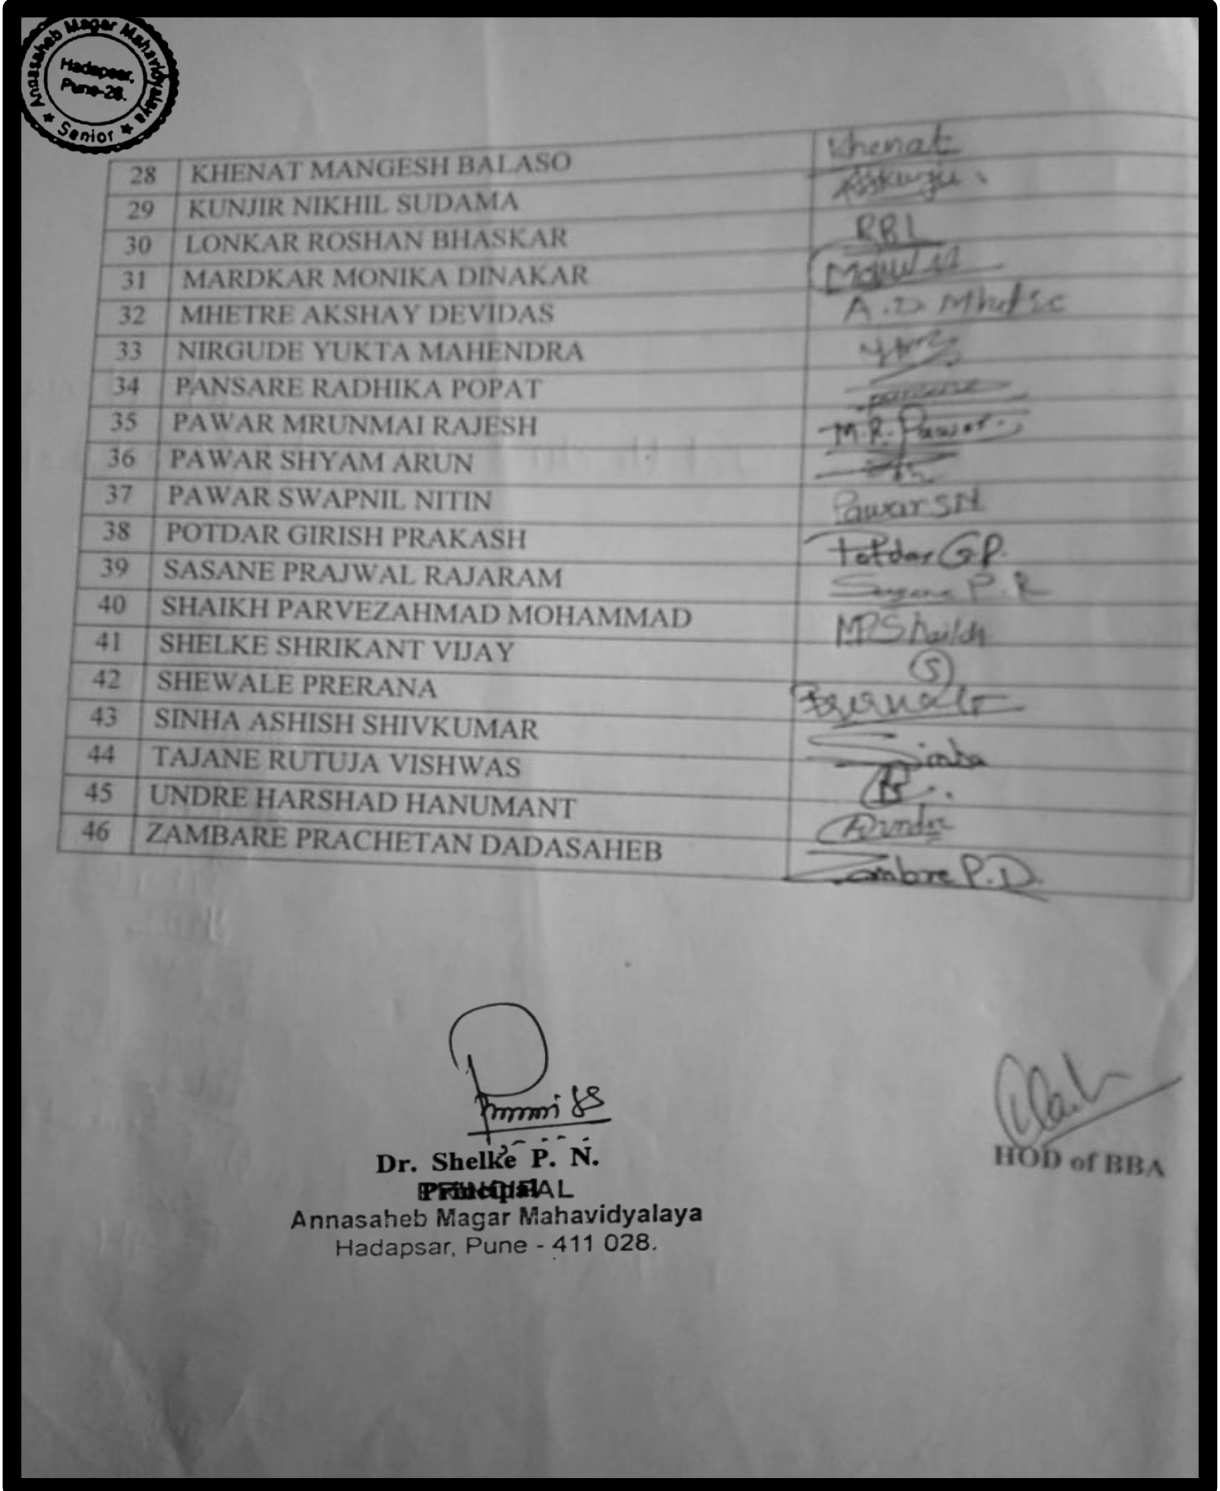 Annasaheb Magar Mahavidyalaya
Hadapsar,
Pune-28.
★ Senior ★
28 KHENAT MANGESH BALASO Khenat
29 KUNJIR NIKHIL SUDAMA
30 LONKAR ROSHAN BHASKAR RBL
31 MARDKAR MONIKA DINAKAR
32 MHETRE AKSHAY DEVIDAS A.D
33 NIRGUDE YUKTA MAHENDRA
34 PANSARE RADHIKA POPAT pansare
35 PAWAR MRUNMAI RAJESH M.R. Pawar
36 PAWAR SHYAM ARUN
37 PAWAR SWAPNIL NITIN Pawar SN
38 POTDAR GIRISH PRAKASH Potdar G.P.
39 SASANE PRAJWAL RAJARAM P.R
40 SHAIKH PARVEZAHMAD MOHAMMAD MPShaikh
41 SHELKE SHRIKANT VIJAY S
42 SHEWALE PRERANA
43 SINHA ASHISH SHIVKUMAR Sinha
44 TAJANE RUTUJA VISHWAS
45 UNDRE HARSHAD HANUMANT
46 ZAMBARE PRACHETAN DADASAHEB Zambre P.D.
Dr. Shelke P. N.
Principal
PRINCIPAL
Annasaheb Magar Mahavidyalaya
Hadapsar, Pune - 411 028.
HOD of BBA